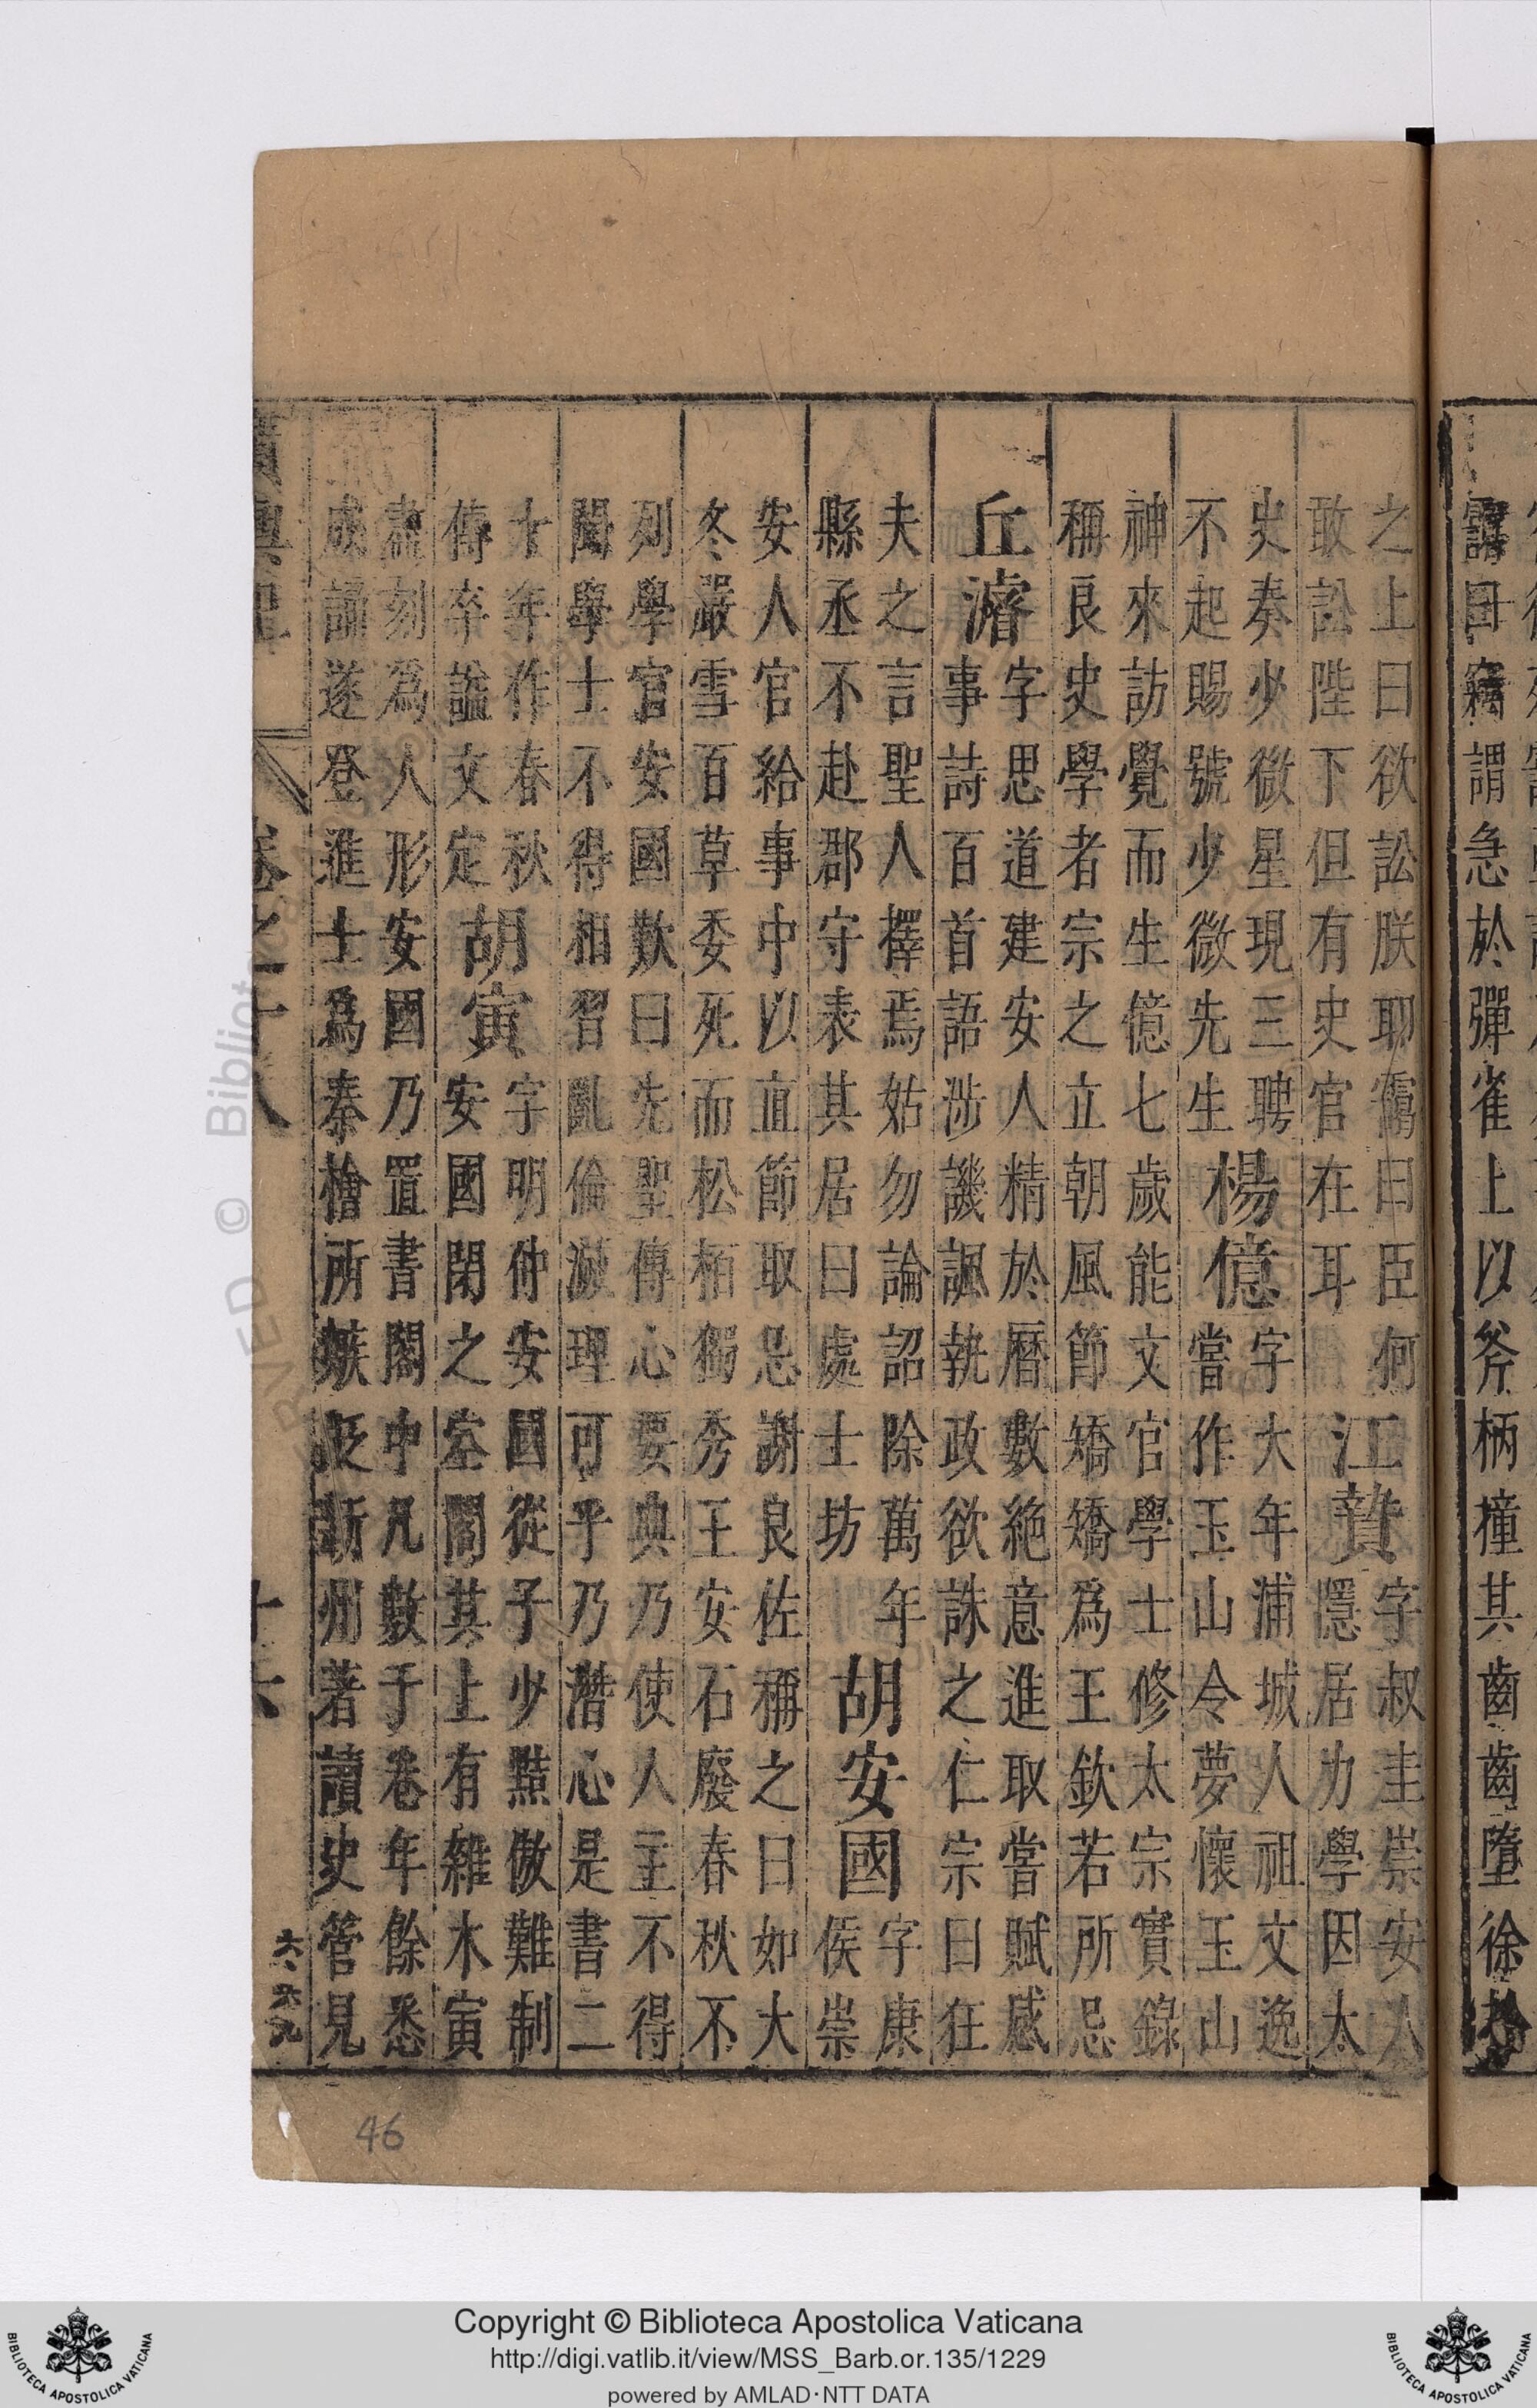 曰竊謂急於彈雀上以斧柄撞其齒齒墮徐拾
之上曰欲訟朕耶靄曰臣何
敢訟陛下但有史官在耳
江贄
字叔圭崇安人
隱居力學因太
史奏少微星現三聘
不起賜號少微先生
楊億
字大年浦城人祖文逸
嘗作玉山令夢懷玉山
神來訪覺而生億七歲能文官學士修太宗實錄
稱良史學者宗之立朝風節矯矯爲王欽若所忌
丘濬
字思道建安人精於曆數絕意進取嘗賦感
事詩百首語涉譏諷執政欲誅之仁宗曰狂
夫之言聖人擇焉姑勿論詔除萬年
縣丞不赴郡守表其居曰處士坊
胡安國
字康
侯崇
安人官給事中以直節取忌謝良佐稱之曰如大
冬嚴雪百草委死而松栢獨秀王安石廢春秋不
列學官安國歎曰先聖傳心要典乃使人主不得
聞學士不得相習亂倫滅理可乎乃潛心是書二
十年作春秋
傳卒謚文定
胡寅
字明仲安國從子少黠傲難制
安國閉之空閣其上有雜木寅
盡刻爲人形安國乃置書閣中凡數于卷年餘悉
成誦遂登進士爲秦檜所嫉貶新州著讀史管見
卷之十八
十六
46
Copyright © Biblioteca Apostolica Vaticana
http://digi.vatlib.it/view/MSS_Barb.or.135/1229
powered by AMLAD·NTT DATA
BIBLIOTECA APOSTOLICA VATICANA
BIBLIOTECA APOSTOLICA VATICANA